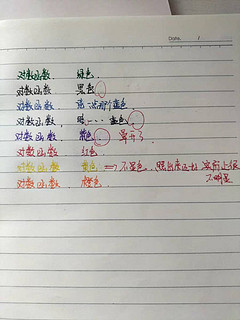 Date. /
对数函数 绿色.
对数函数 黑色.
对数函数. 蓝色.
对数函数, 蓝色.
对数函数 紫色.
对数函数 红色.
对数函数 黄色 => 不是色, 照出来 实际上很
不明显
对数函数. 橙色.